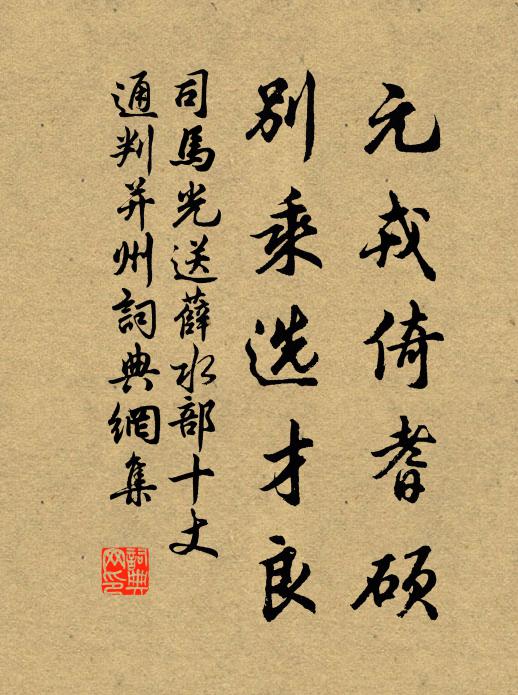 元戎倚耆硕
別乘选才良
司馬光送薛水部十丈
通判并州詞典網集
詞典网印